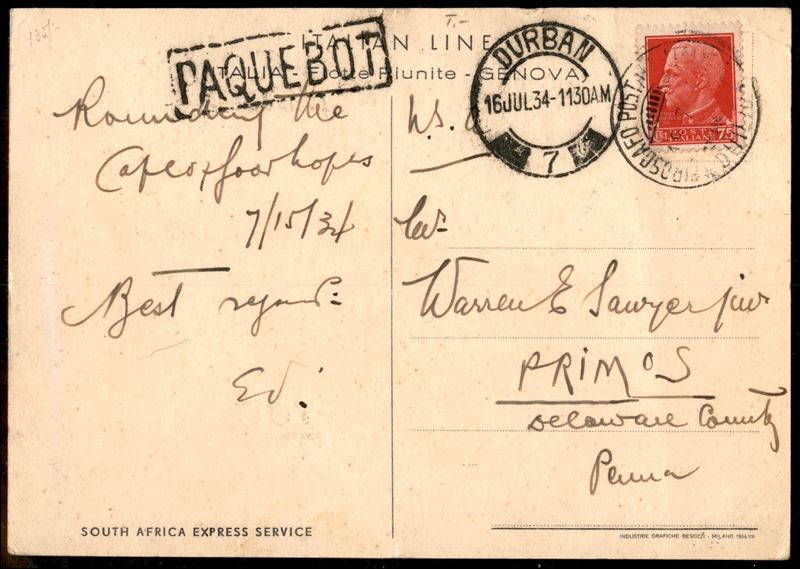 135/-
T.-
ITALIAN LINE
ITALIA - Flotte Riunite - GENOVA
PAQUEBOT
DURBAN
16 JUL 34-1130AM
7
POSTE
ITALIANE
75
PIROSCAFO POSTALE
Rounding the
Cape of Good hopes
7/15/34
Best regards
Ed.
U.S.A
Warren E Sawyer junr
PRIMOS
Delaware County
Penna
SOUTH AFRICA EXPRESS SERVICE
INDUSTRIE GRAFICHE BESOZZI - MILANO 1934.XII